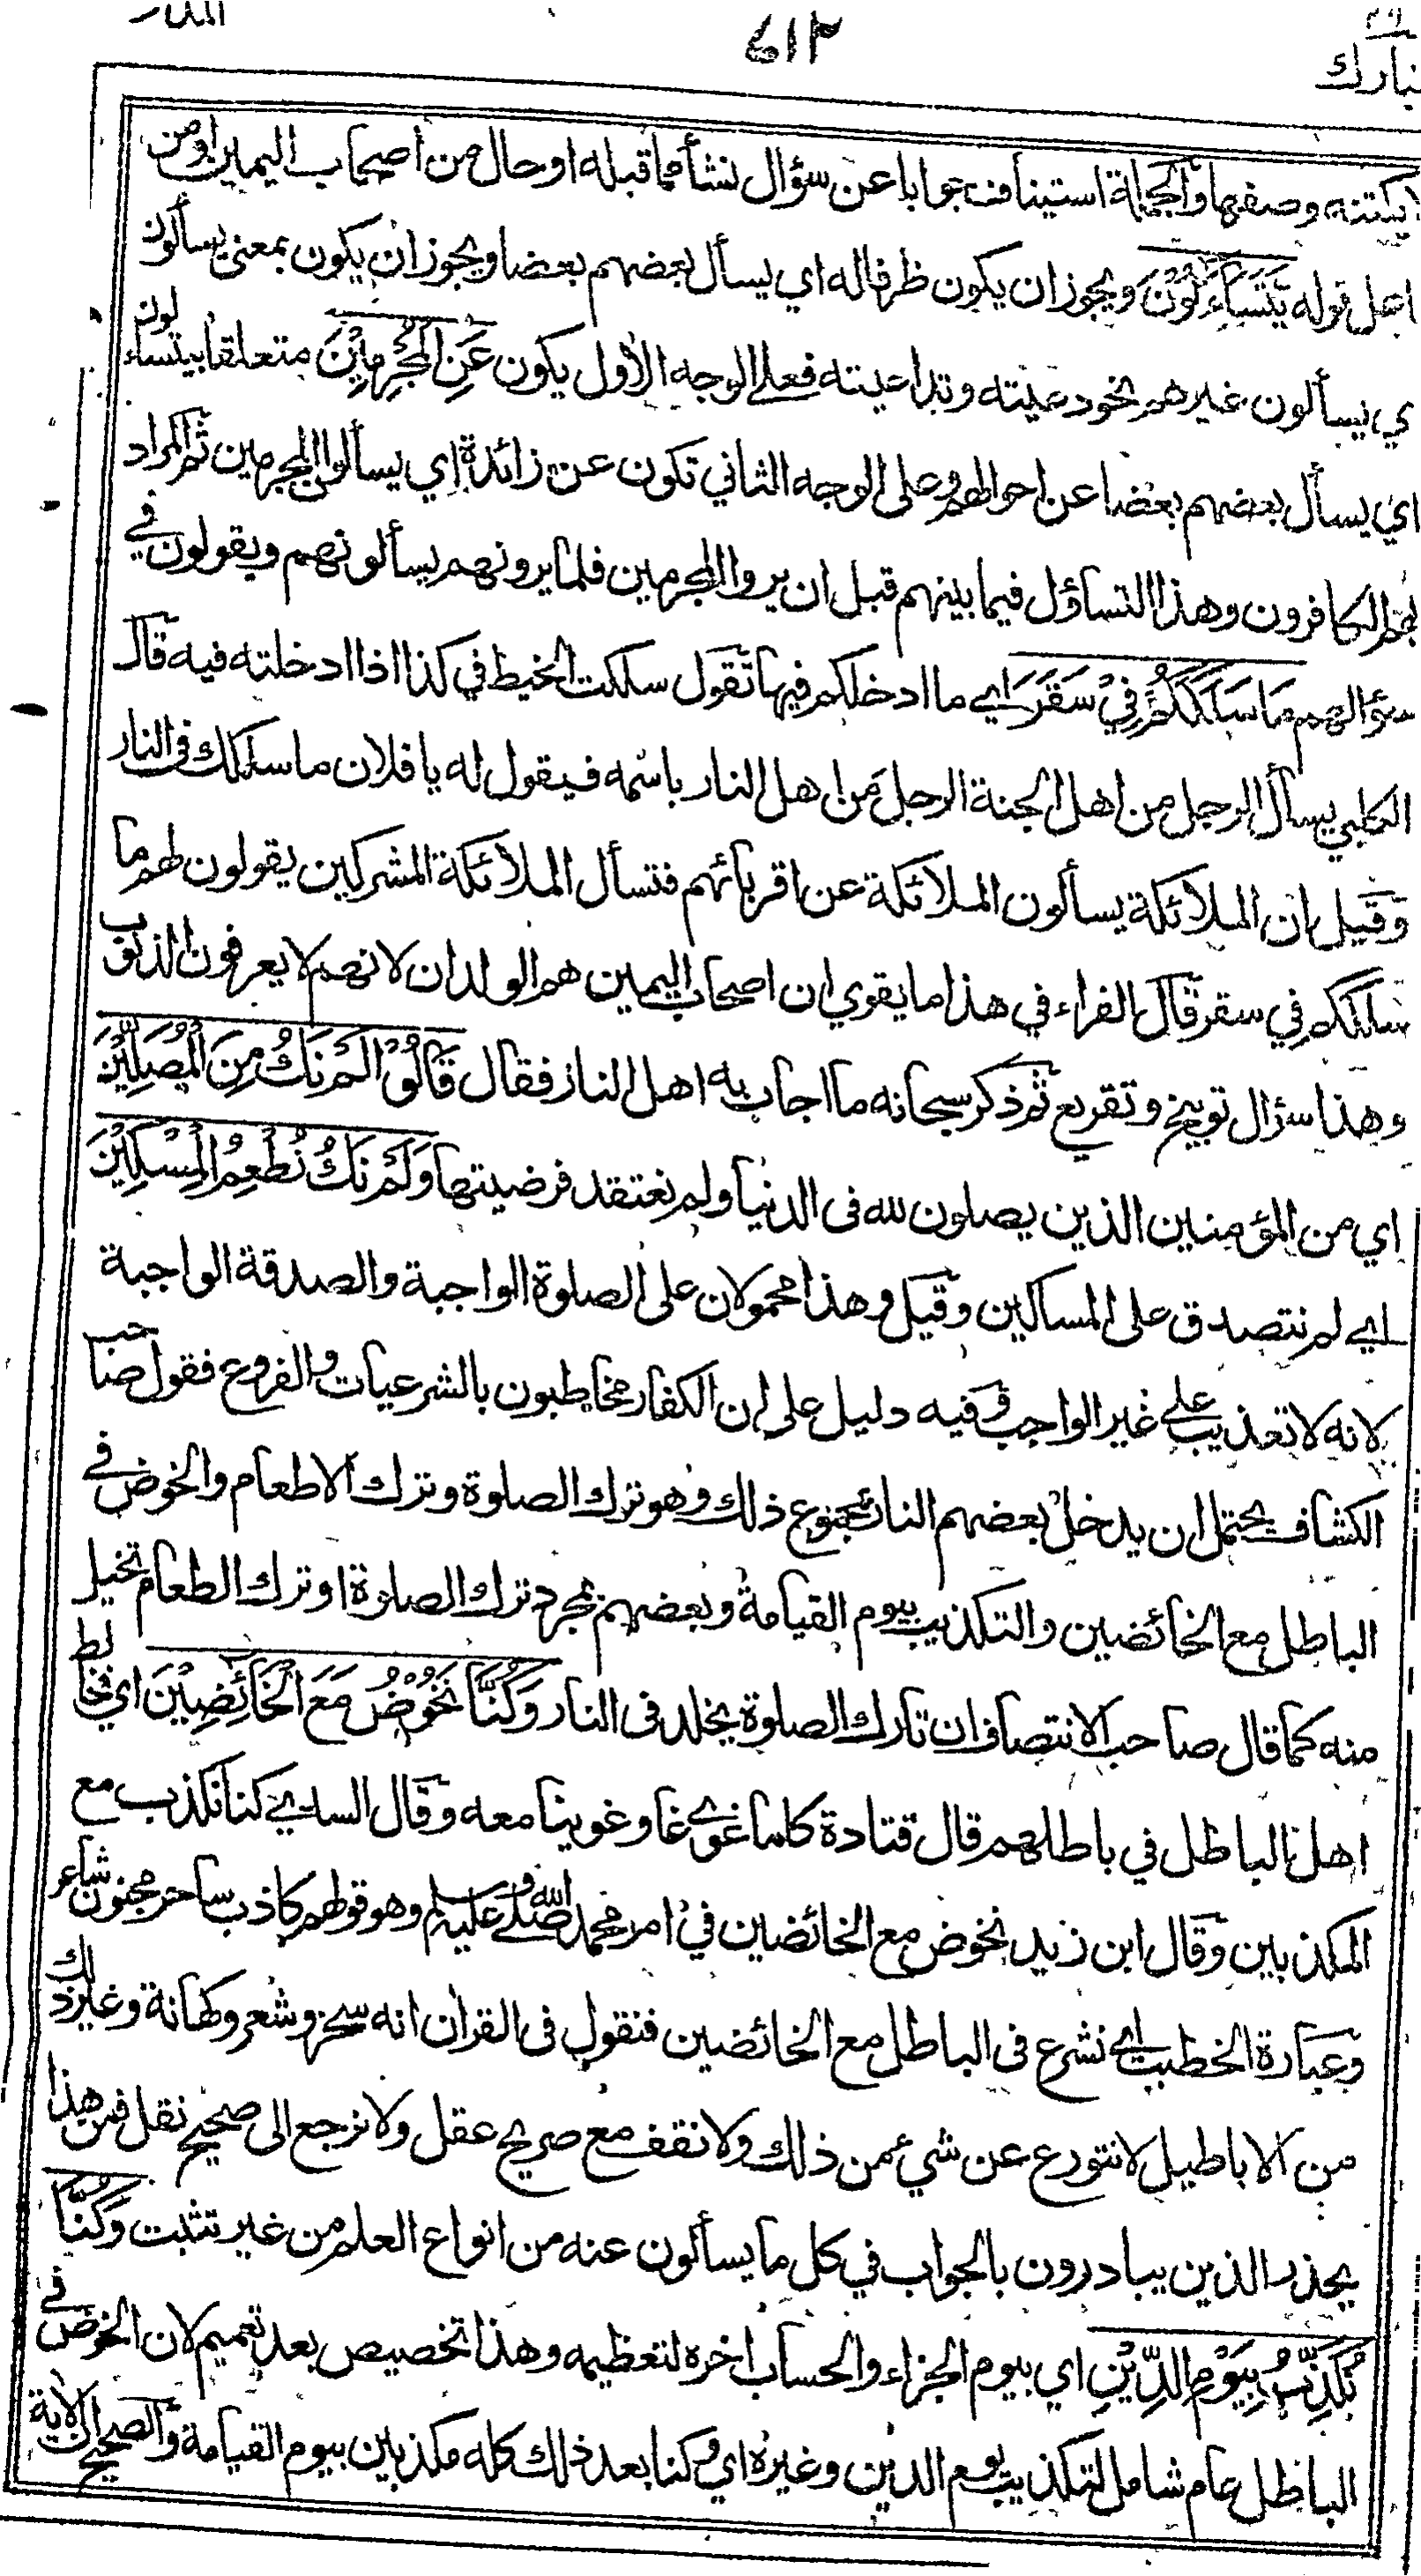 تبارك ٢٩
٤١٣
المدثر
يكتنه وصفها والجملة استيناف جوابا عن سؤال نشأ مما قبله او حال من اصحاب اليمين او من
اهل قوله يَتَسَاءَلُوْنَ ويجوز ان يكون ظرفا له اي يسأل بعضهم بعضا ويجوز ان يكون بمعنى يسألون
ي يسألون غيرهم نحو دعيته وتداعيته فعلى الوجه الاول يكون عَنِ الْمُجْرِمِيْنَ متعلقا بيتساءلون
اي يسأل بعضهم بعضا عن احوالهم وعلى الوجه الثاني تكون عن زائدة اي يسألون المجرمين ثم المراد
بهم الكافرون وهذا التساؤل فيما بينهم قبل ان يروا المجرمين فلما يرونهم يسألونهم ويقولون في
سؤالهم مَا سَلَكَكُمْ فِيْ سَقَرَ اي ما ادخلكم فيها تقول سلكت الخيط في كذا اذا ادخلته فيه قال
الكلبي يسأل الرجل من اهل الجنة الرجل من اهل النار باسمه فيقول له يا فلان ما سلكك فى النار
وقيل ان الملائكة يسألون الملائكة عن اقربائهم فتسأل الملائكة المشركين يقولون لهم ما
سلككم في سقر قال الفراء في هذا ما يقوي ان اصحاب اليمين هم الولدان لانهم لا يعرفون الذنوب
وهذا سؤال توبيخ وتقريع ثم ذكر سبحانه ما اجاب به اهل النار فقال قَالُوْا لَمْ نَكُ مِنَ الْمُصَلِّيْنَ
اي من المؤمنين الذين يصلون لله فى الدنيا ولم نعتقد فرضيتها وَلَمْ نَكُ نُطْعِمُ الْمِسْكِيْنَ
اي لم نتصدق على المساكين وقيل وهذا محمولان على الصلوة الواجبة والصدقة الواجبة
لانه لا تعذيب على غير الواجب وفيه دليل على ان الكفار مخاطبون بالشرعيات والفروع فقول صاحب
الكشاف يحتمل ان يدخل بعضهم النار بمجموع ذلك وهو ترك الصلوة وترك الاطعام والخوض في
الباطل مع الخائضين والتكذيب بيوم القيامة وبعضهم بمجرد ترك الصلوة او ترك الطعام تخيل
منه كما قال صاحب الانتصاف ان تارك الصلوة يخلد فى النار وَكُنَّا نَخُوْضُ مَعَ الْخَائِضِيْنَ اي نخالط
اهل الباطل في باطلهم قال قتادة كلما غوى غاو غوينا معه وقال السدي كنا نكذب مع
المكذبين وقال ابن زيد نخوض مع الخائضين في امر محمد صلى الله عليه وسلم وهو قولهم كاذب ساحر مجنون شاعر
وعبارة الخطيب اي نشرع فى الباطل مع الخائضين فنقول فى القرآن انه سحر وشعر وكهانة وغير ذلك
من الاباطيل لا نتورع عن شيء من ذلك ولا نقف مع صريح عقل ولا نرجع الى صحيح نقل فمن هذا
يحذر الذين يبادرون بالجواب في كل ما يسألون عنه من انواع العلم من غير تثبت وَكُنَّا
نُكَذِّبُ بِيَوْمِ الدِّيْنِ اي بيوم الجزاء والحساب اخره لتعظيمه وهذا تخصيص بعد تعميم لان الخوض في
الباطل عام شامل لتكذيب يوم الدين وغيره اي وكنا بعد ذلك كله مكذبين بيوم القيامة والصحيح ان الآية